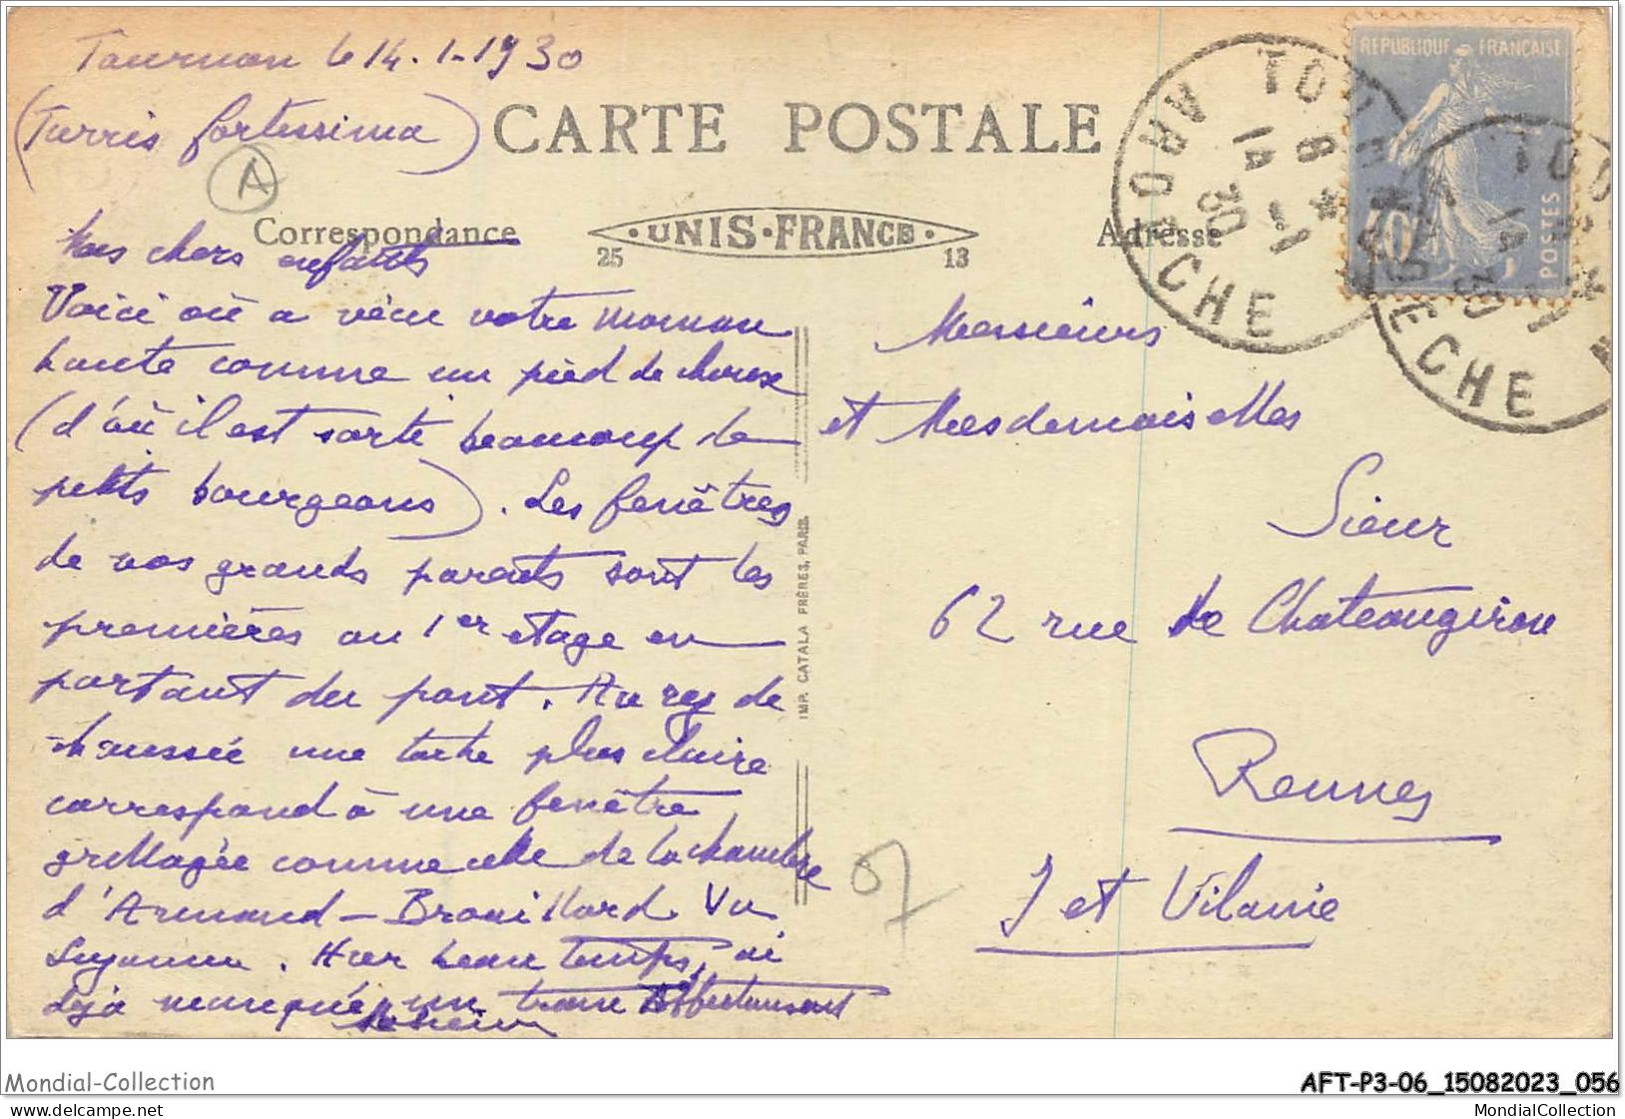 Tournon le 14.1-1930
(Turris fortissima)
A
CARTE POSTALE
Correspondance
UNIS-FRANCE
25 13
Adresse
REPUBLIQUE FRANÇAISE
40 POSTES
TOURNON ARDECHE
8 * 14 -1 30
Mes chers enfants
Voici où a vécu votre maman
haute comme un pied de chaise
(d'où il est sorti beaucoup de
petits bourgeons). Les fenêtres
de vos grands parents sont les
premières au 1er etage en
partant du pont. Au rez de
chaussée une tache plus claire
correspond à une fenêtre
grillagée comme celle de la chambre
d'Armand - Brouillard Vu
Suzanne. Hier beau temps, ai
deja manqué un train
IMP. CATALA FRÈRES, PARIS.
Messieurs
et Mesdemoiselles
Sieur
62 rue de Chateaugiron
Rennes
I et Vilaine
07
Mondial-Collection
AFT-P3-06_15082023_056
http://www.delcampe.net
MondialCollection